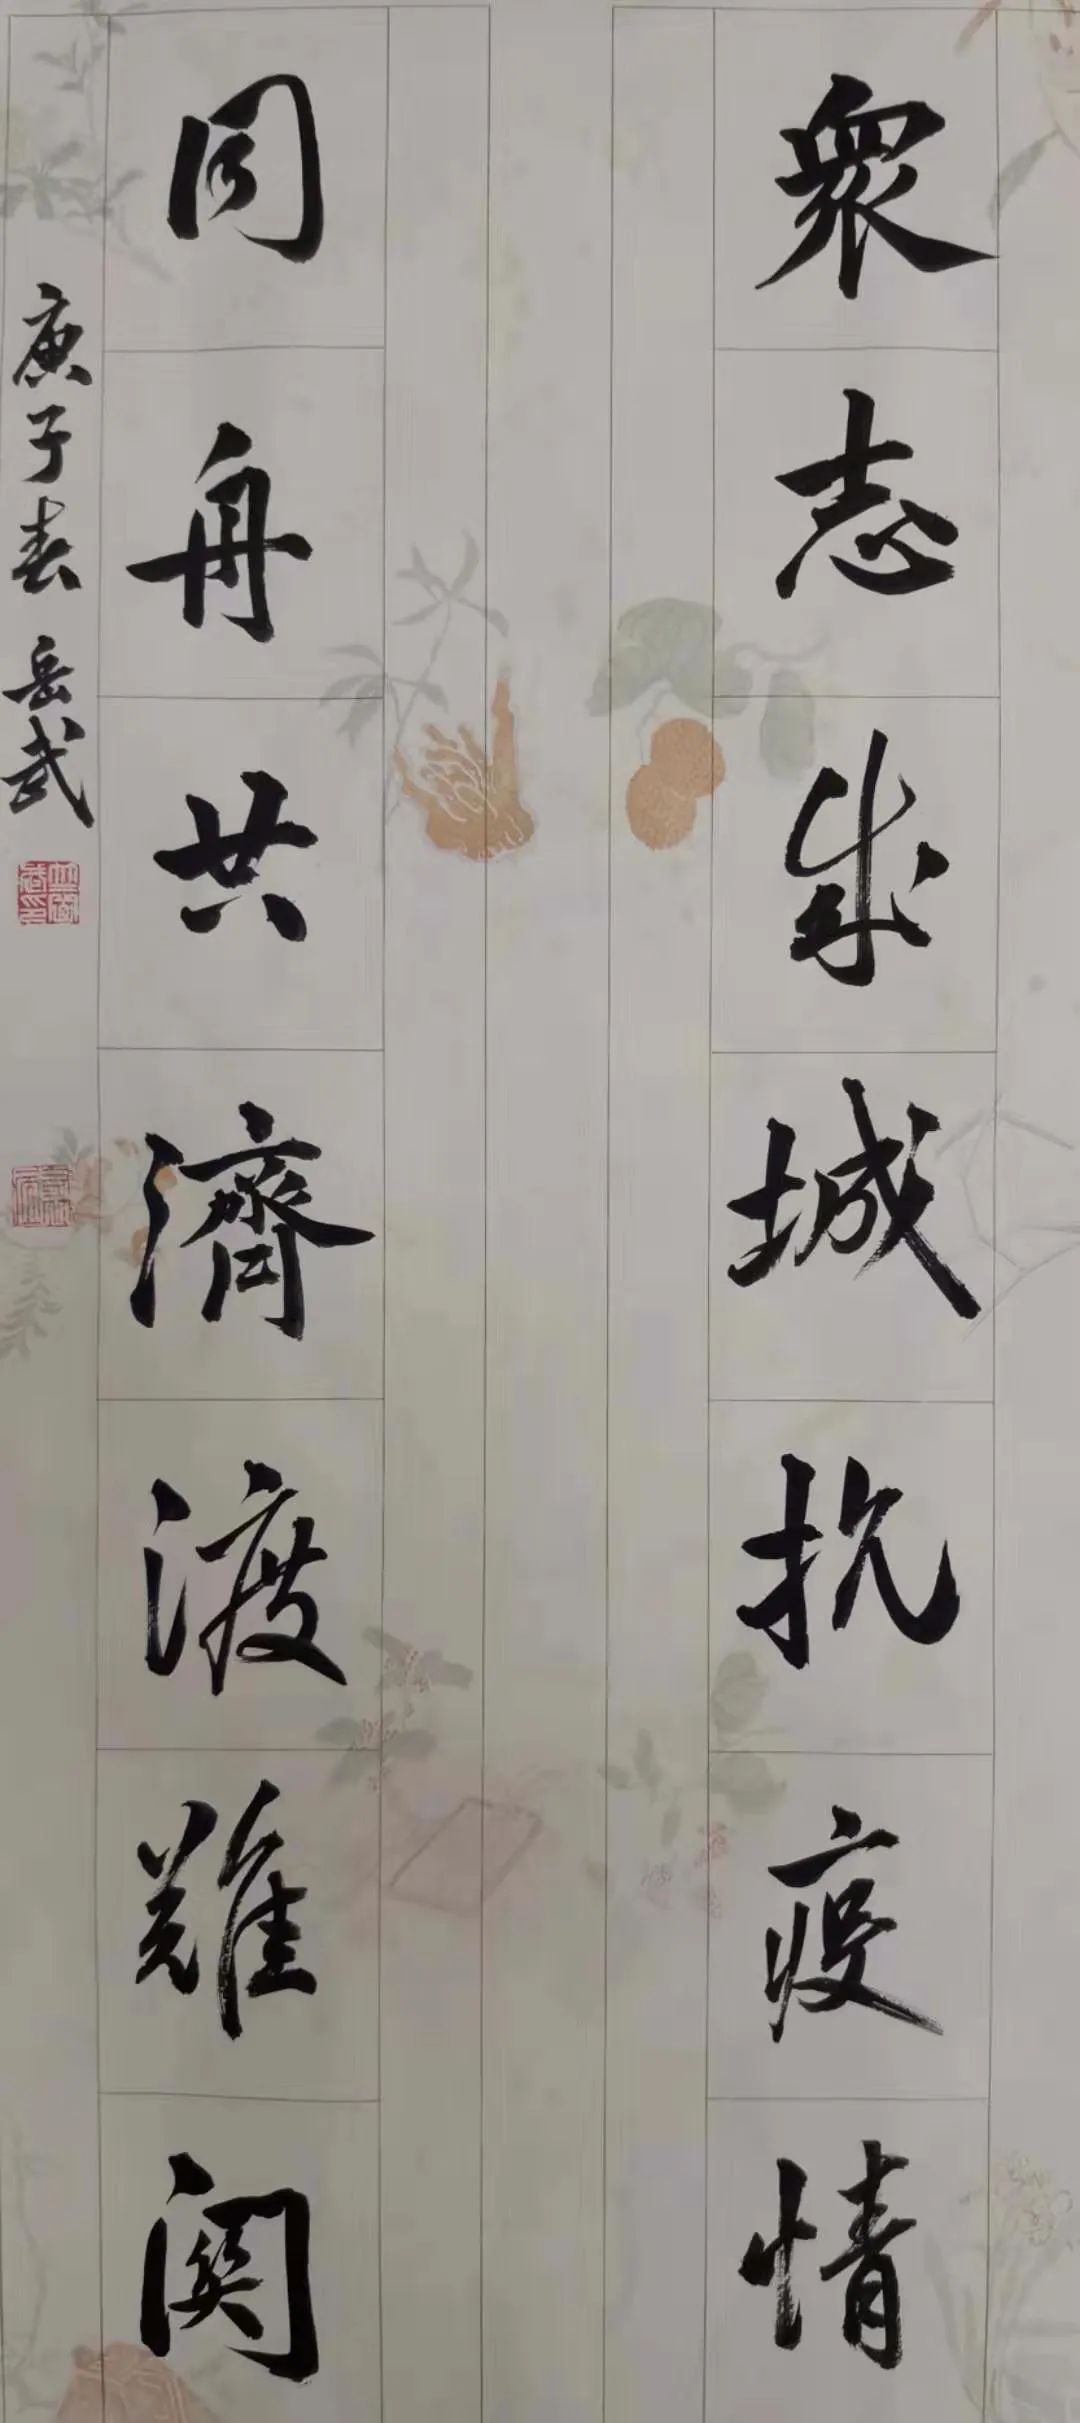 衆志成城抗疫情
同舟共濟渡難関
庚子春 岳武